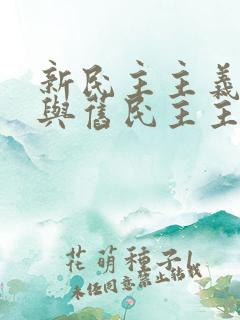 新民主主義
與舊民主主
花萌種子l
未经同意禁止转载